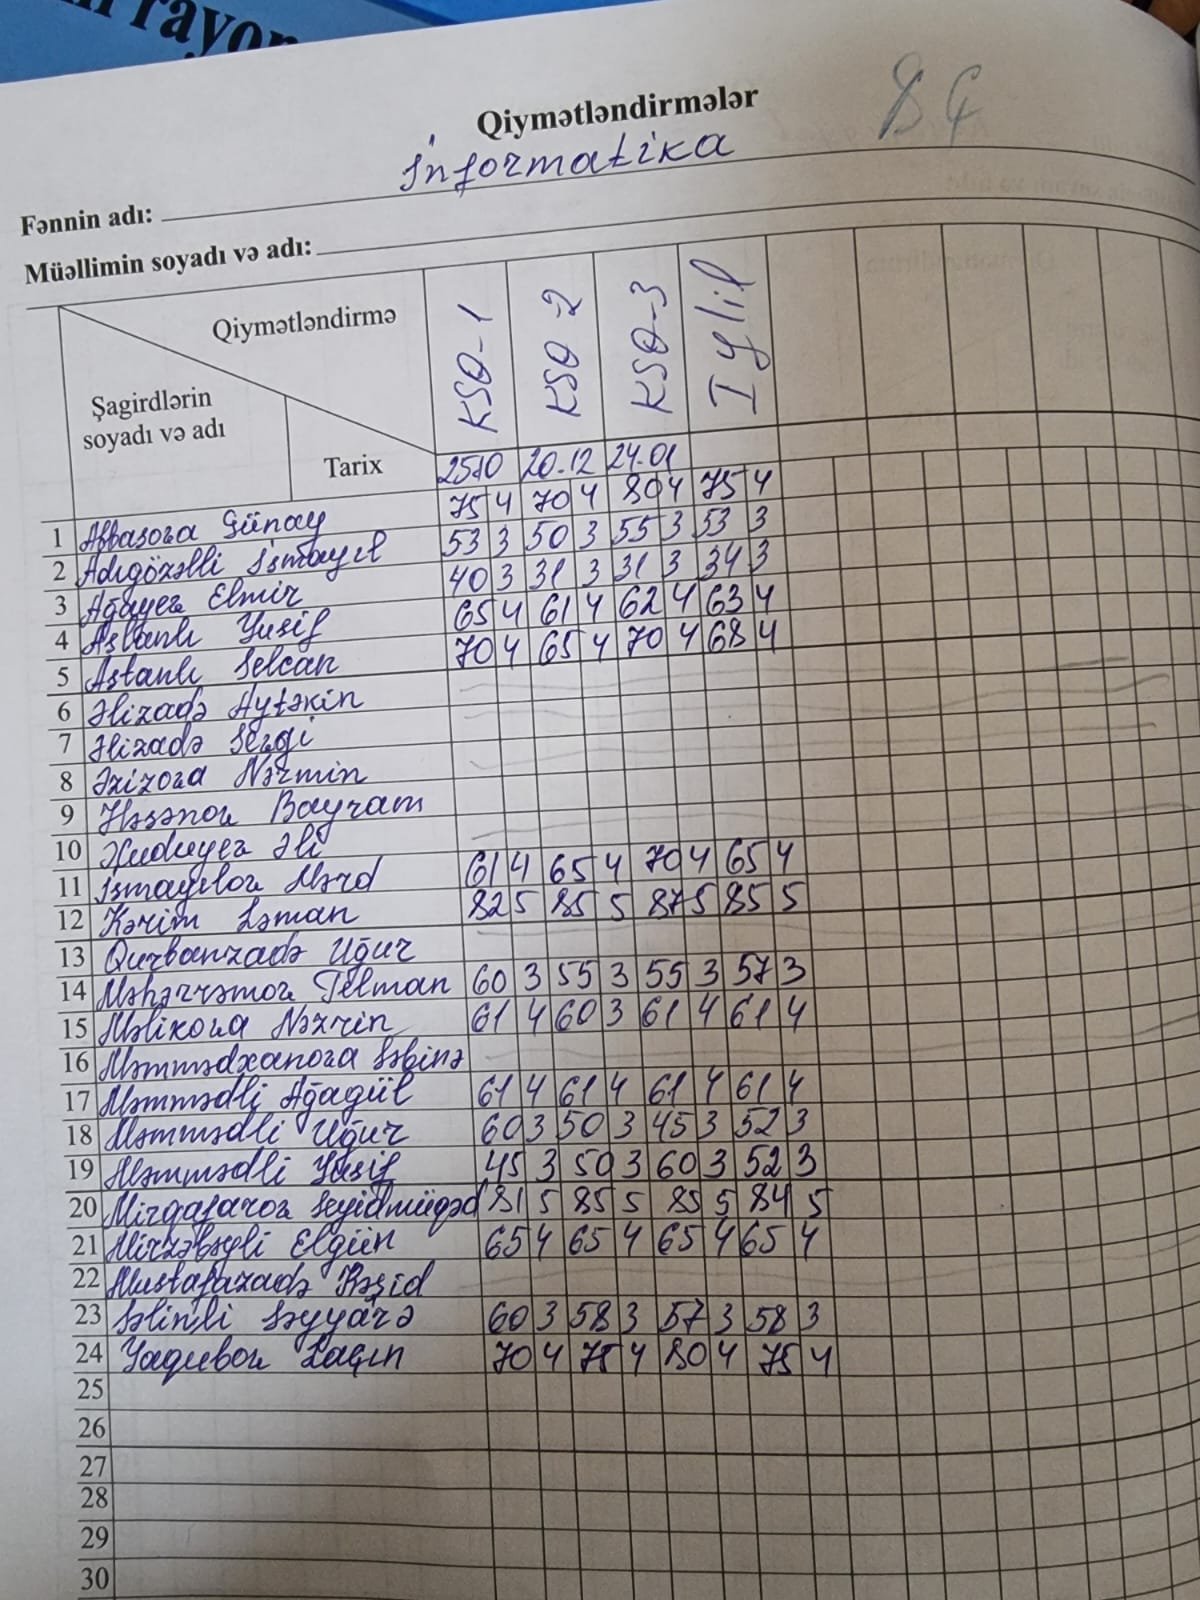 rayon
Qiymətləndirmələr
8ç
Fənnin adı: İnformatika
Müəllimin soyadı və adı:
Qiymətləndirmə
Şagirdlərin soyadı və adı
Tarix
KSQ-1 KSQ-2 KSQ-3 I yıl
2510 20.12 24.01
1 Abbasova Günay 75 4 70 4 80 4 75 4
2 Adıgözəlli İsmayıl 53 3 50 3 55 3 53 3
3 Ağayev Elmir 40 3 31 3 31 3 34 3
4 Aslanlı Yusif 65 4 61 4 62 4 63 4
5 Astanlı Selcan 70 4 65 4 70 4 68 4
6 Əlizadə Aytəkin
7 Əlizadə Sezgi
8 Əzizova Nərmin
9 Həsənov Bayram
10 Xuduyev Əli
11 İsmayılov Mərd 61 4 65 4 70 4 65 4
12 Kərim Ləman 82 5 85 5 87 5 85 5
13 Qurbanzadə Uğur
14 Məhərrəmov Telman 60 3 55 3 55 3 57 3
15 Məlikova Nəzrin 61 4 60 3 61 4 61 4
16 Məmmədxanova Səbinə
17 Məmmədli Ağagül 61 4 61 4 61 4 61 4
18 Məmmədli Uğur 60 3 50 3 45 3 52 3
19 Məmmədli Yusif 45 3 50 3 60 3 52 3
20 Mirqafarov 81 5 85 5 85 5 84 5
21 Mirzəbəyli Elgün 65 4 65 4 65 4 65 4
22 Mustafazadə Rəşid
23 Səyyarə 60 3 58 3 57 3 58 3
24 Yaqubov Laçın 70 4 75 4 80 4 75 4
25
26
27
28
29
30